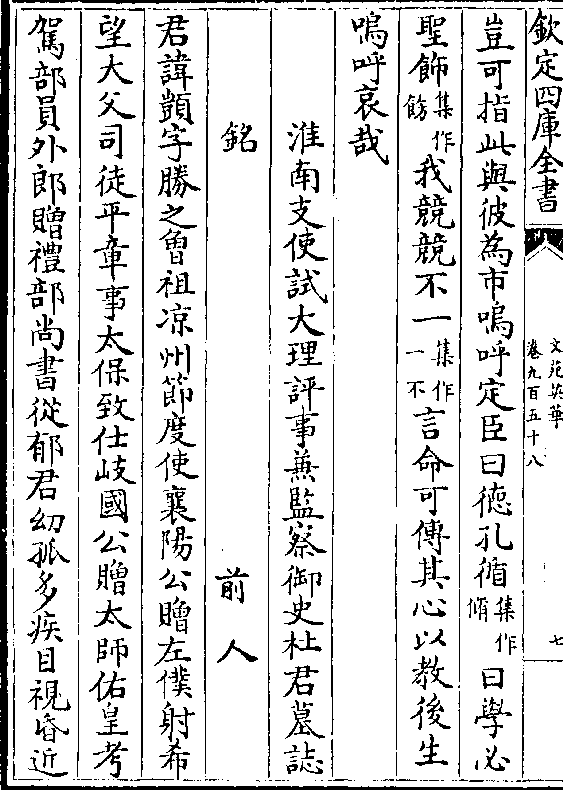 欽定四庫全書
文苑英華
卷九百五十八
七
豈可指此與彼為市嗚呼定臣曰德孔循集作脩曰學必
聖飾集作飭我競競不一集作一不言命可傳其心以教後生
嗚呼哀哉
淮南支使試大理評事兼監察御史杜君墓誌
銘 前人
君諱顗字勝之曾祖凉州節度使襄陽公贈左僕射希
望大父司徒平章事太保致仕岐國公贈太師佑皇考
駕部員外郎贈禮部尚書從郁君幼孤多疾目視昏近